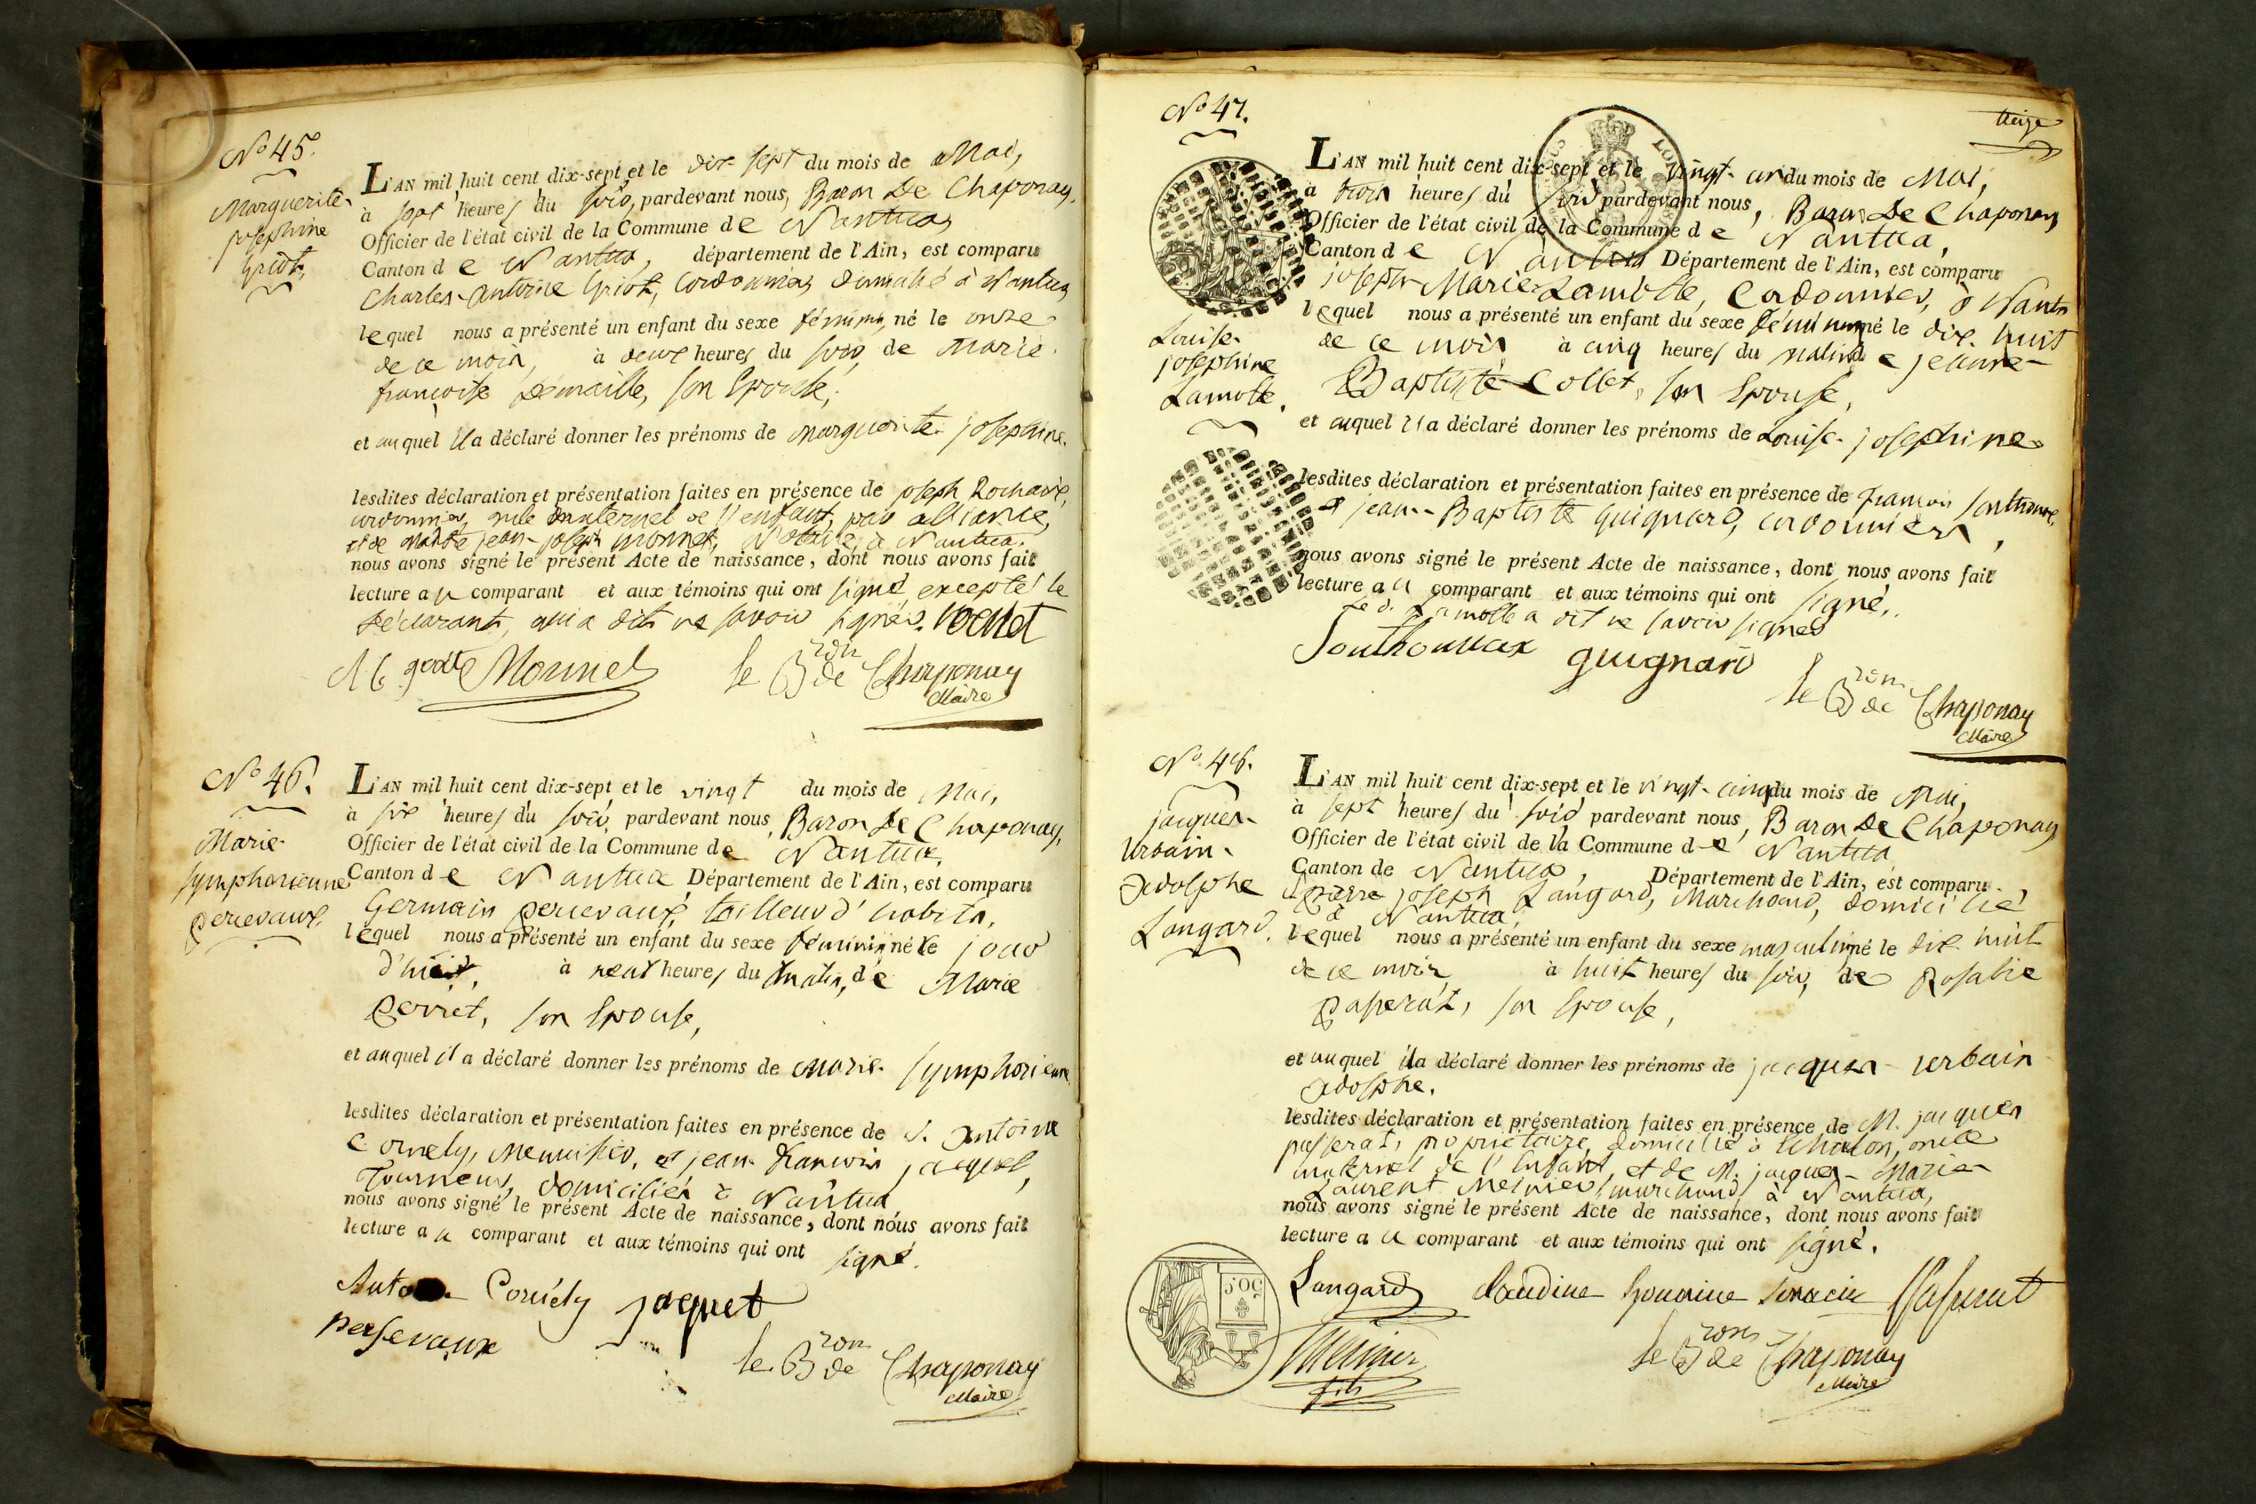 No 45.
Marguerite-
josephine
Griot,
L'AN mil huit cent dix-sept et le dix sept du mois de Mai,
à sept heures du soir, pardevant nous, Baron De Chaponay,
Officier de l'état civil de la Commune de Nantua,
Canton de Nantua, département de l'Ain, est comparu
Charles-Antoine Griot, Cordonnier, Domicilié à Nantua
lequel nous a présenté un enfant du sexe féminin, né le onze
de ce mois, à deux heures du soir, de Marie
françoise Demaille, son Epouse,
et auquel il a déclaré donner les prénoms de Marguerite josephine.
lesdites déclaration et présentation faites en présence de joseph
cordonnier, oncle maternel de l'enfant, par alliance,
et de jean-joseph monnet, Notaire, à Nantua.
nous avons signé le présent Acte de naissance, dont nous avons fait
lecture au comparant et aux témoins qui ont signé excepté le
Déclarant, qui a dit ne savoir signer.
Monnet
le Bron de Chaponay
Maire
No 46.
Marie-
symphorienne
percevaux.
L'AN mil huit cent dix-sept et le vingt du mois de Mai,
à six heures du soir, pardevant nous, Baron De Chaponay,
Officier de l'état civil de la Commune de Nantua,
Canton de Nantua Département de l'Ain, est comparu
Germain percevaux, tailleur d'habits,
lequel nous a présenté un enfant du sexe féminin né le jour
d'hier, à neuf heures du matin, de Marie
perret, son Epouse,
et auquel il a déclaré donner les prénoms de Marie-symphorienne
lesdites déclaration et présentation faites en présence de S. Antoine
Cornely, Menuisier, et jean-francois jacquet,
Tourneur, domiciliés à Nantua
nous avons signé le présent Acte de naissance, dont nous avons fait
lecture au comparant et aux témoins qui ont signé.
Cornély jaquet
persevaux
le Bron de Chaponay
Maire
No 47.
treize
Louise-
josephine
Lamotte.
L'AN mil huit cent dix-sept et le vingt-un du mois de Mai,
à trois heures du soir pardevant nous, Baron De Chaponay
Officier de l'état civil de la Commune de Nantua,
Canton de Nantua Département de l'Ain, est comparu
joseph-Marie Lamotte, Cordonnier, à Nantua
lequel nous a présenté un enfant du sexe féminin né le dix-huit
de ce mois à cinq heures du matin de jeanne-
Baptiste Collet, son Epouse,
et auquel il a déclaré donner les prénoms de Louise-josephine
lesdites déclaration et présentation faites en présence de francois
et jean-Baptiste guignard, cordonniers,
nous avons signé le présent Acte de naissance, dont nous avons fait
lecture au comparant et aux témoins qui ont signé.
le d. Lamotte a dit ne savoir signer
Southonnax guignard
le Bron de Chaponay
Maire
No 48.
jacques-
Urbain-
Adolphe
Langard.
L'AN mil huit cent dix-sept et le vingt-cinq du mois de Mai,
à sept heures du soir pardevant nous, Baron De Chaponay
Officier de l'état civil de la Commune de Nantua
Canton de Nantua, Département de l'Ain, est comparu
pierre joseph Langard, Marchand, domicilié
à Nantua,
lequel nous a présenté un enfant du sexe masculin né le dix huit
de ce mois, à huit heures du soir, de Rosalie
passerat, son Epouse,
et auquel il a déclaré donner les prénoms de jacques-urbain
Adolphe.
lesdites déclaration et présentation faites en présence de M. jacques
passerat, propriétaire, domicilié à oncle
maternel de l'Enfant, et de M. jacques-Marie-
Laurent Mesnier, marchand, à Nantua,
nous avons signé le présent Acte de naissance, dont nous avons fait
lecture au comparant et aux témoins qui ont signé.
Langard Claudine Passerat
fils
le Bron de Chaponay
Maire
50C